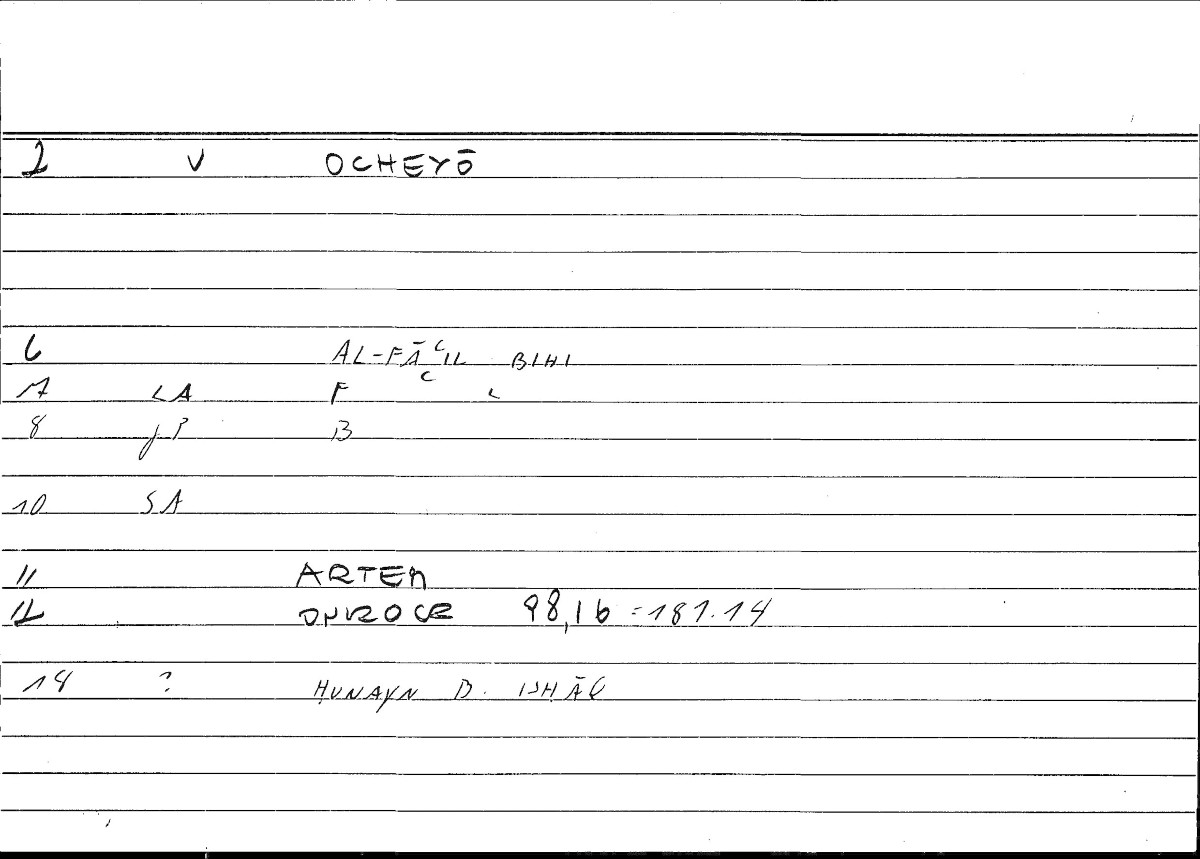 2 V OCHEYŌ
6 AL-FĀʿIL BIHI
7 LA F
8 jP B
10 SA
11 ARTEM
12 98,16 = 181.14
14 ? ḤUNAYN B. ISḤĀQ